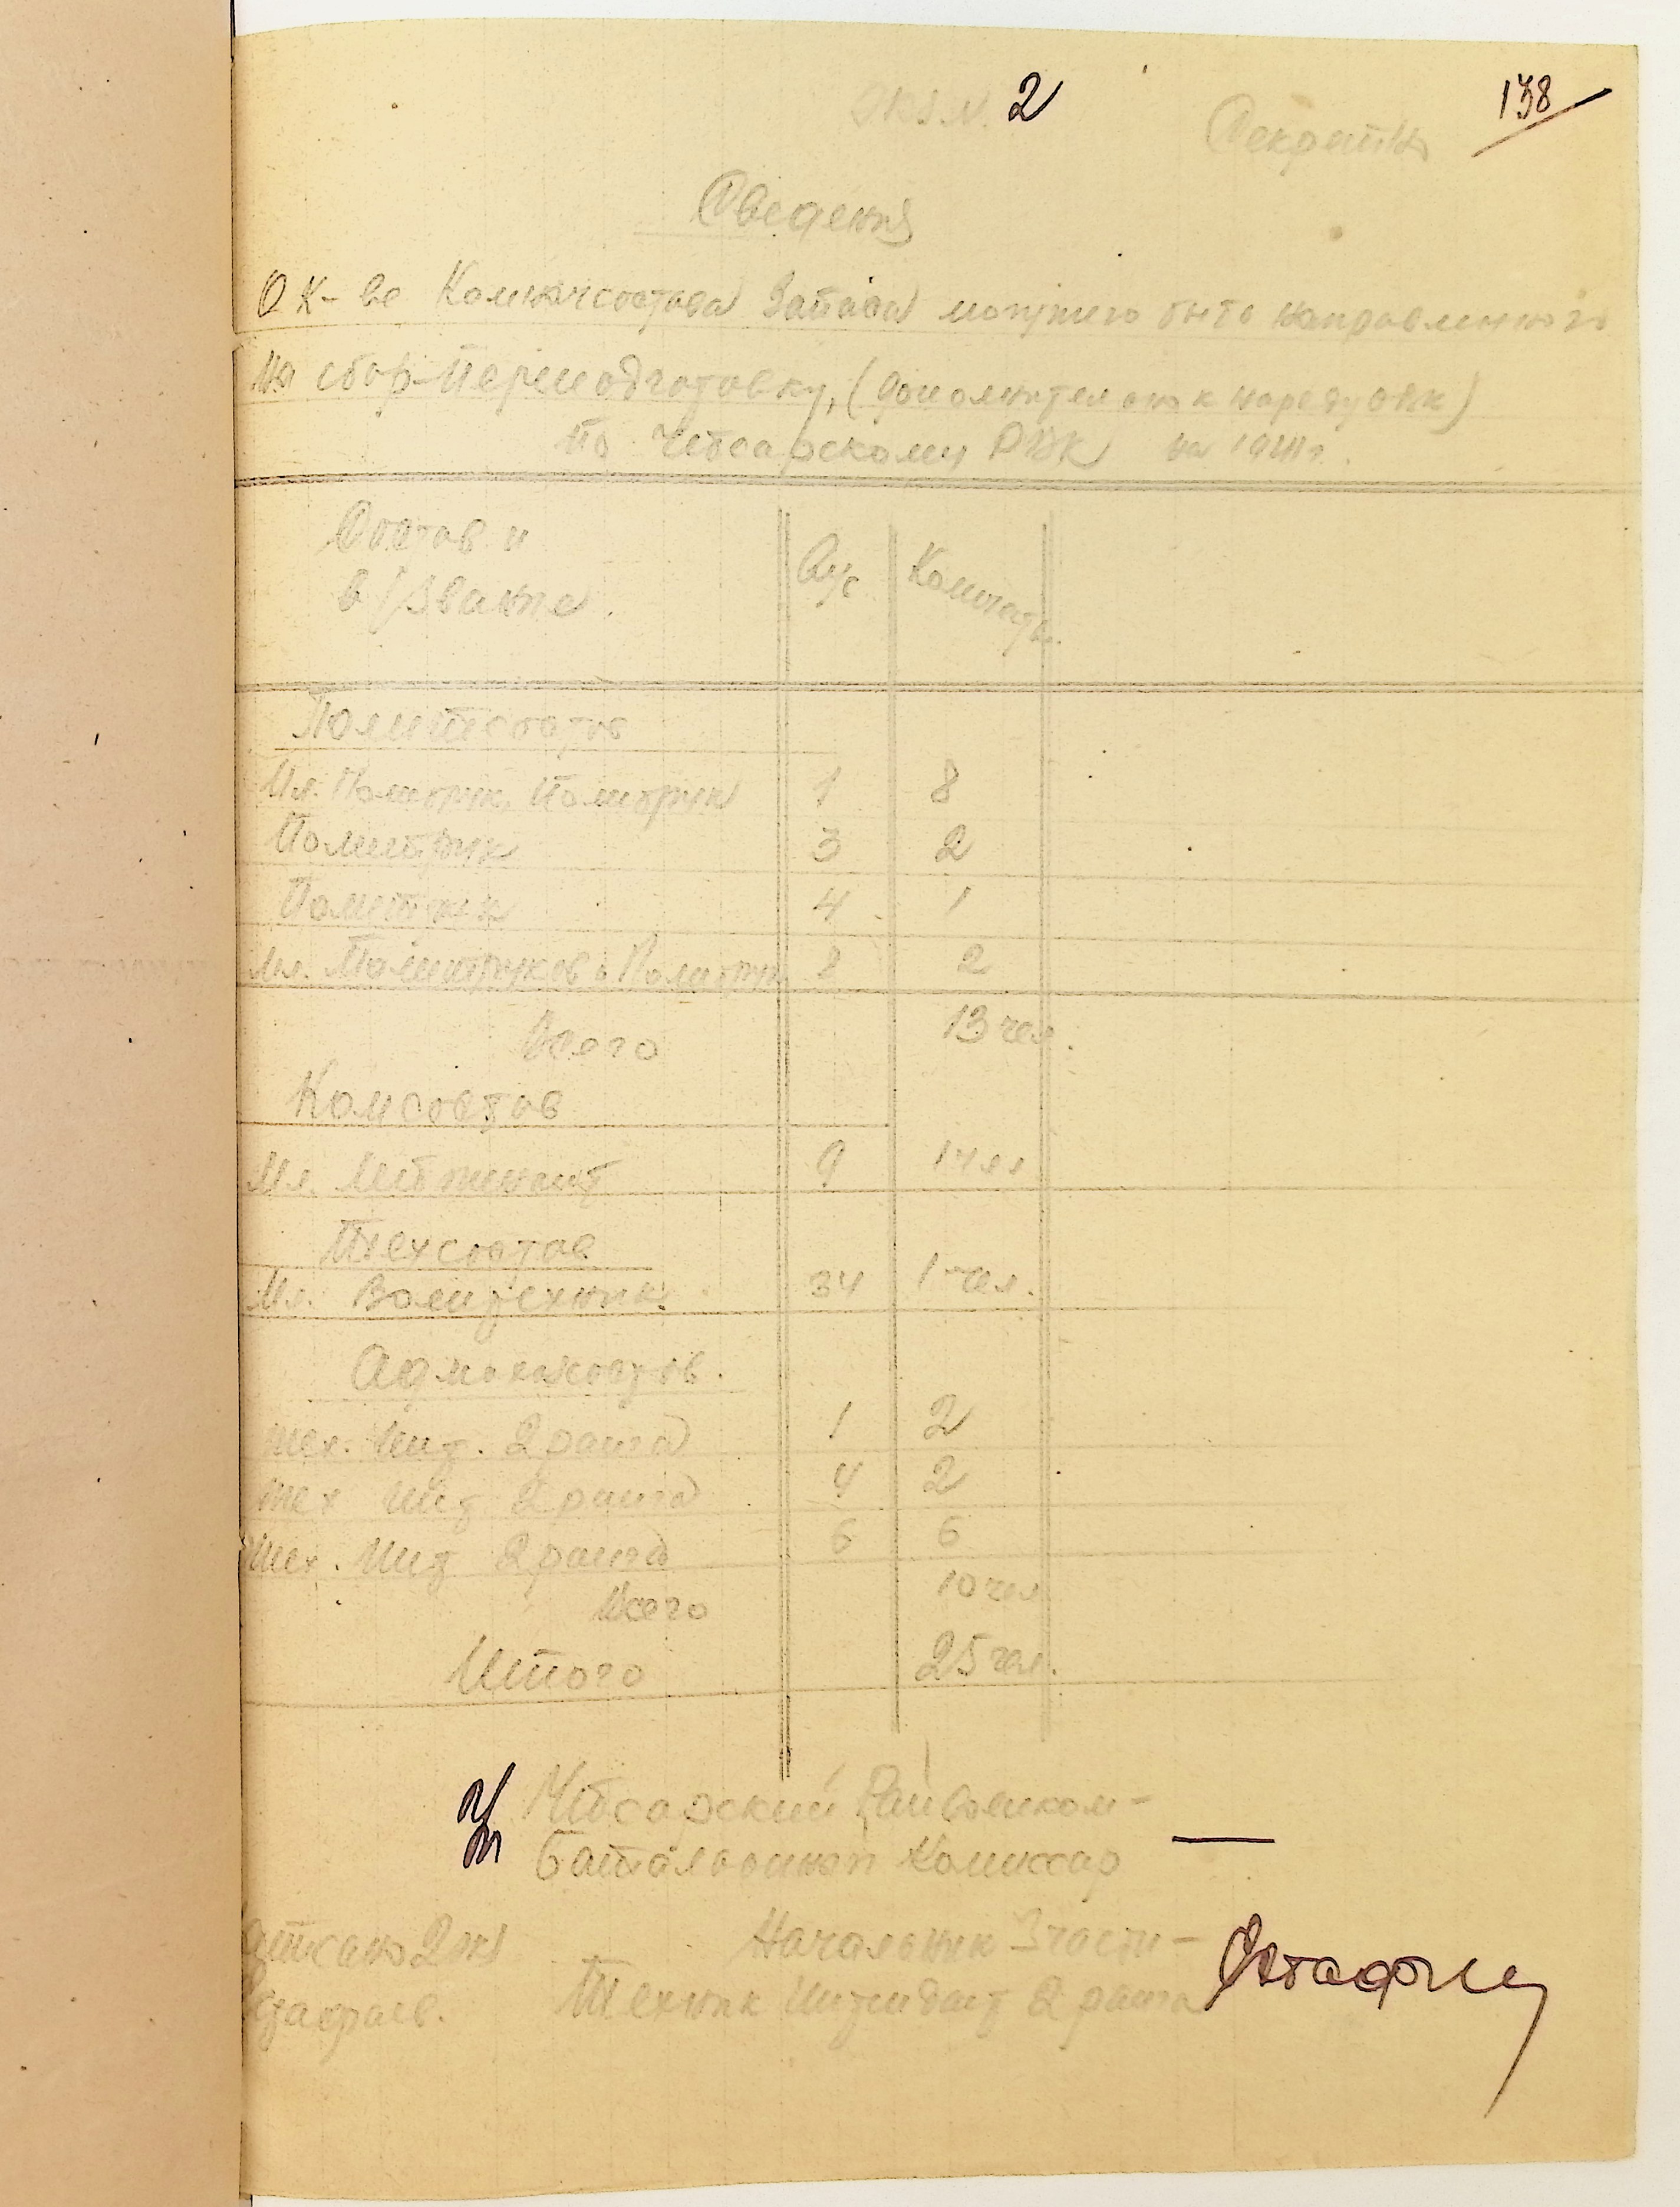 экз. N. 2
138
Секретно
Сведения
О к-ве Комначсостава Запаса могущего быть направленного
на сбор-переподготовку, (дополнительно к наряду ОВК)
по Чебсарскому РВК на 1941 г.
Состав и в/звание. Вус Количеств.
Политсостав
Мл. Политрук, Политрук 1 8
Политрук 3 2
Политрук 4 1
Мл. Политруков и Политрук 8 2
Всего 13 чел.
Комсостав
Мл. Лейтенант 9 1 чел
Техсостав
Мл. Воентехник. 34 1 чел.
Админхозсостав.
Тех. Инт. 2 ранга 1 2
Тех Инт 2 ранга 4 2
Тех. Инт 2 ранга 6 6
Всего 10 чел
Итого 25 чел.
Чебсарский Райвоенком-
Батальонный Комиссар —
Начальник 3 части-
Техник Интендант 2 ранга
Отпечатано 2 экз